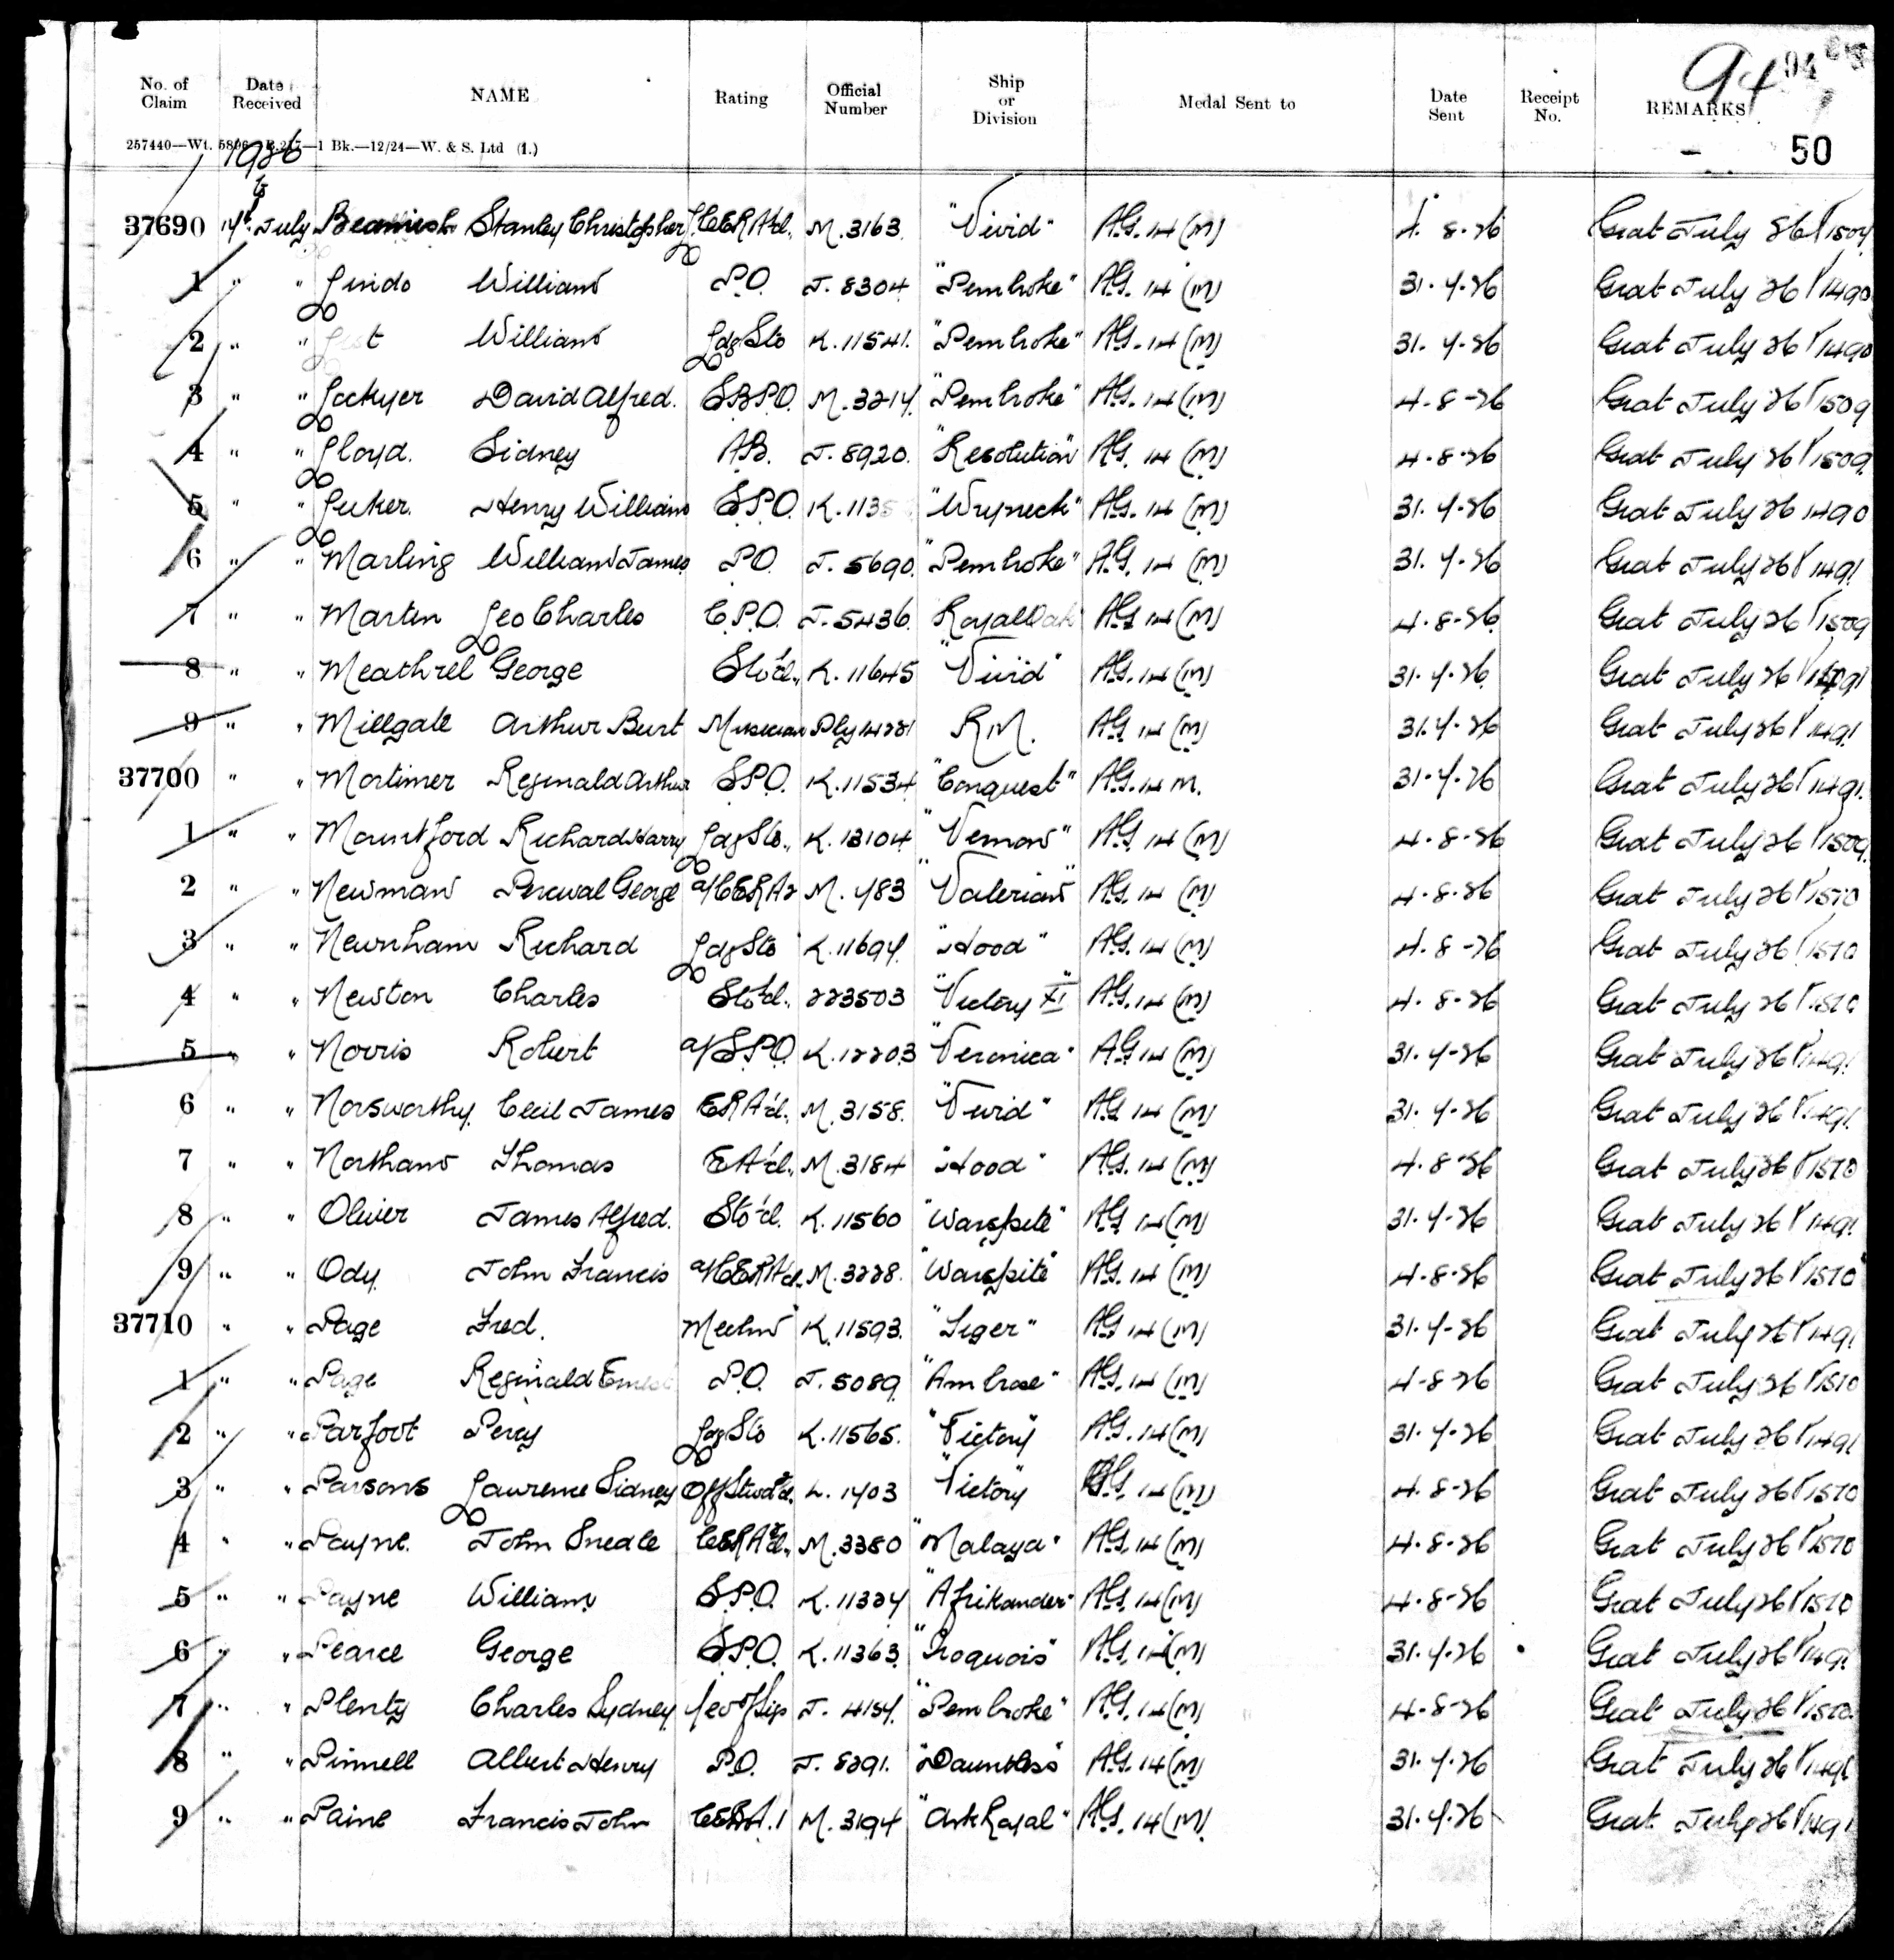 94 94
No. of Claim Date Received NAME Rating Official Number Ship or Division Medal Sent to Date Sent Receipt No. REMARKS
257440—Wt. 5896 —1 Bk.—12/24—W. & S. Ltd (1.) 50
1926
37690 14th July Beamish Stanley Christopher M.3163 "Vivid" A.G. 14 (M) 4.8.26 Grat July 26 1509
1 " " Lindo William P.O. J.8304 "Pembroke" A.G. 14 (M) 31.7.26 Grat July 26 1490
2 " " William Ldg Sto K.11541. "Pembroke" A.G. 14 (M) 31.7.26 Grat July 26 1490
3 " " Lockyer David Alfred. S.B.P.O. M.3217. "Pembroke" A.G. 14 (M) 4.8-26 Grat July 26 1509
4 " " Lloyd. Sidney A.B. J.8920. "Resolution" A.G. 14 (M) 4.8.26 Grat July 26 1509.
5 " " Luker. Henry William S.P.O. K.1135 "Wryneck" A.G. 14 (M) 31.7.26 Grat July 26 1490
6 " " Marling William James P.O. J.5690. "Pembroke" A.G. 14 (M) 31.7.26 Grat July 26 1491
7 " " Martin Leo Charles C.P.O. J.5436. Royal Oak A.G. 14 (M) 4.8.26. Grat July 26 1509
8 " " Meathrel George Sto 1cl. K.11645 "Vivid" A.G. 14 (M) 31.7.26. Grat July 26 1491
9 " " Millgate Arthur Burt Musician Ply 14221 R.M. A.G. 14 (M) 31.7.26 Grat July 26 1491
37700 " " Mortimer Reginald Arthur S.P.O. K.11534 "Conquest" A.G. 14 M. 31.7.26 Grat July 26 1491.
1 " " Mountford Richard Harry Ldg Sto. K.13104 "Vernon" A.G. 14 (M) 4.8.26 Grat July 26 1509.
2 " " Newman Percival George a/CERA2 M.783 "Valerian" A.G. 14 (M) 4.8.26 Grat July 26 1510
3 " " Newnham Richard Ldg Sto K.11697. "Hood" A.G. 14 (M) 4.8-26 Grat July 26 1510
4 " " Newton Charles Sto 1cl. 223503 "Victory XI" A.G. 14 (M) 4.8.26 Grat July 26 1510
5 " " Norris Robert a/S.P.O. K.12203 "Veronica" A.G. 14 (M) 31.7.26 Grat July 26 1491
6 " " Norsworthy. Cecil James ERA 1cl. M.3158. "Vivid" A.G. 14 (M) 31.7.26 Grat July 26 1491
7 " " Northam Thomas EA 1cl. M.3184 "Hood" A.G. 14 (M) 4.8.26 Grat July 26 1510
8 " " Oliver James Alfred. Sto 1cl. K.11560 "Warspite" A.G. 14 (M) 31.7.26 Grat July 26 1491
9 " " Ody. John Francis M.3228. "Warspite" A.G. 14 (M) 4.8.26 Grat July 26 1510
37710 " " Page Fred. Mechn K.11593. "Tiger" A.G. 14 (M) 31.7-26 Grat July 26 1491
1 " " Page Reginald Ernest P.O. J.5089. "Ambrose" A.G. 14 (M) 4-8-26 Grat July 26 1510
2 " " Parfoot Percy Ldg Sto K.11565. "Victory" A.G. 14 (M) 31.7.26 Grat July 26 1491
3 " " Parsons Laurence Sidney L.1703 "Victory" A.G. 14 (M) 4.8-26 Grat July 26 1510
4 " " Payne. John M.3380 "Malaya" A.G. 14 (M) 4.8.26 Grat July 26 1510
5 " " Payne William S.P.O. K.11327 "Afrikander" A.G. 14 (M) 4.8-26 Grat July 26 1510
6 " " Pearce George S.P.O. K.11363. "Iroquois" A.G. 14 (M) 31.7.26 Grat July 26 1491
7 " " Plenty Charles Sydney J.4157. "Pembroke" A.G. 14 (M) 4.8-26 Grat July 26 1510.
8 " " Pinnell Albert Henry P.O. J.8291. "Dauntless" A.G. 14 (M) 31.7.26 Grat July 26 1491
9 " " Paine Francis John CERA.1 M.3194 "Ark Royal" A.G. 14 (M). 31.7.26 Grat July 26 1491